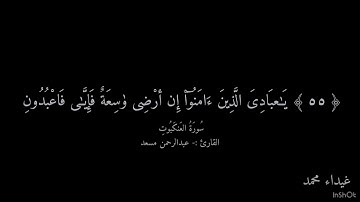 ﴿ ٥٥ ﴾ يَـٰعِبَادِىَ ٱلَّذِينَ ءَامَنُوٓا۟ إِن أَرْضِى وَٰسِعَةٌ فَإِيَّـٰىَ فَٱعْبُدُونِ
سُورَةُ العَنكَبُوتِ
القارئ :- عبدالرحمن مسعد
غيداء محمد
InShOt